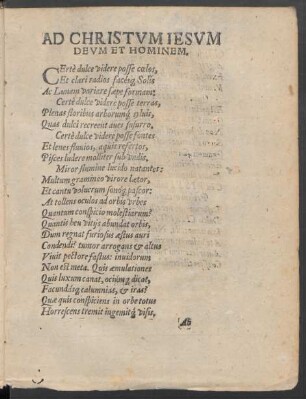 AD CHRISTVM IESVM
DEVM ET HOMINEM.
CErtè dulce videre posse cœlos,
Et clari radios facémq; Solis
Ac Lunam variare sæpe formam:
Certè dulce videre posse terras,
Plenas floribus arborumq́;
Quas dulci recreent aues susurro,
Certè dulce videre posse fontes
Et lenes fluuios, aquis refertos,
Pisces ludere molliter sub
Miror flumine lucido natantes:
Multum gramineo virore lætor,
Et cantu volucrum pascor:
At tollens oculos ad orbis vrbes
Quantum conspicio molestiarum?
Quantis heu vitijs abundat orbis,
Dum regnat furiosus æstus auri
Condendi? tumor arrogans & altus
Viuit pectore fastus: inuidorum
Non est meta. Quis æmulationes
Quis luxum canat, ociumq́; dicat,
Facundusq́; calumnias, & iras?
Quæ quis conspiciens in orbe totus
Horrescens tremit ingemitq́; visis,